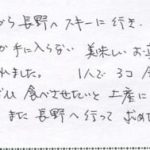 から長野へスキーに行き、
が手に入らない 美味しい お
れました。 1人で 3コ
食べさせたいと 土産に
また 長野へ行って 求め